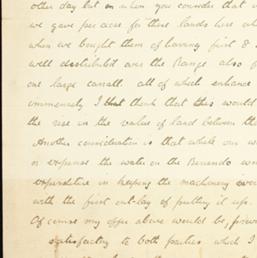 other day but on when you consider that w
we gave per acre for these lands here wh
when we bought them of having first &
well distributed over the Range also f
one large corrall. all of which enhance
immensely I that think that this would
the rise in the value of land between th
Another consideration is that while our w
or expense the water on the Berendo
expenditure in keeping the machinery
with the first out-lay of putting it up.
Of course my offer above would be,
satisfactory to both parties, which I